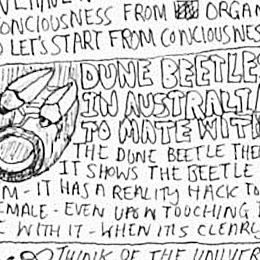 CONCIOUSNESS FROM ORGAN
LET'S START FROM CONCIOUSNES
DUNE BEETLES
IN AUSTRALIA
TO MATE WITH
THE DUNE BEETLE THE
IT SHOWS THE BEETLE
M - IT HAS A REALITY HACK TO
EMALE - EVEN UPON TOUCHING
WITH IT - WHEN IT IS CLEARLY
THINK OF THE UNIVER